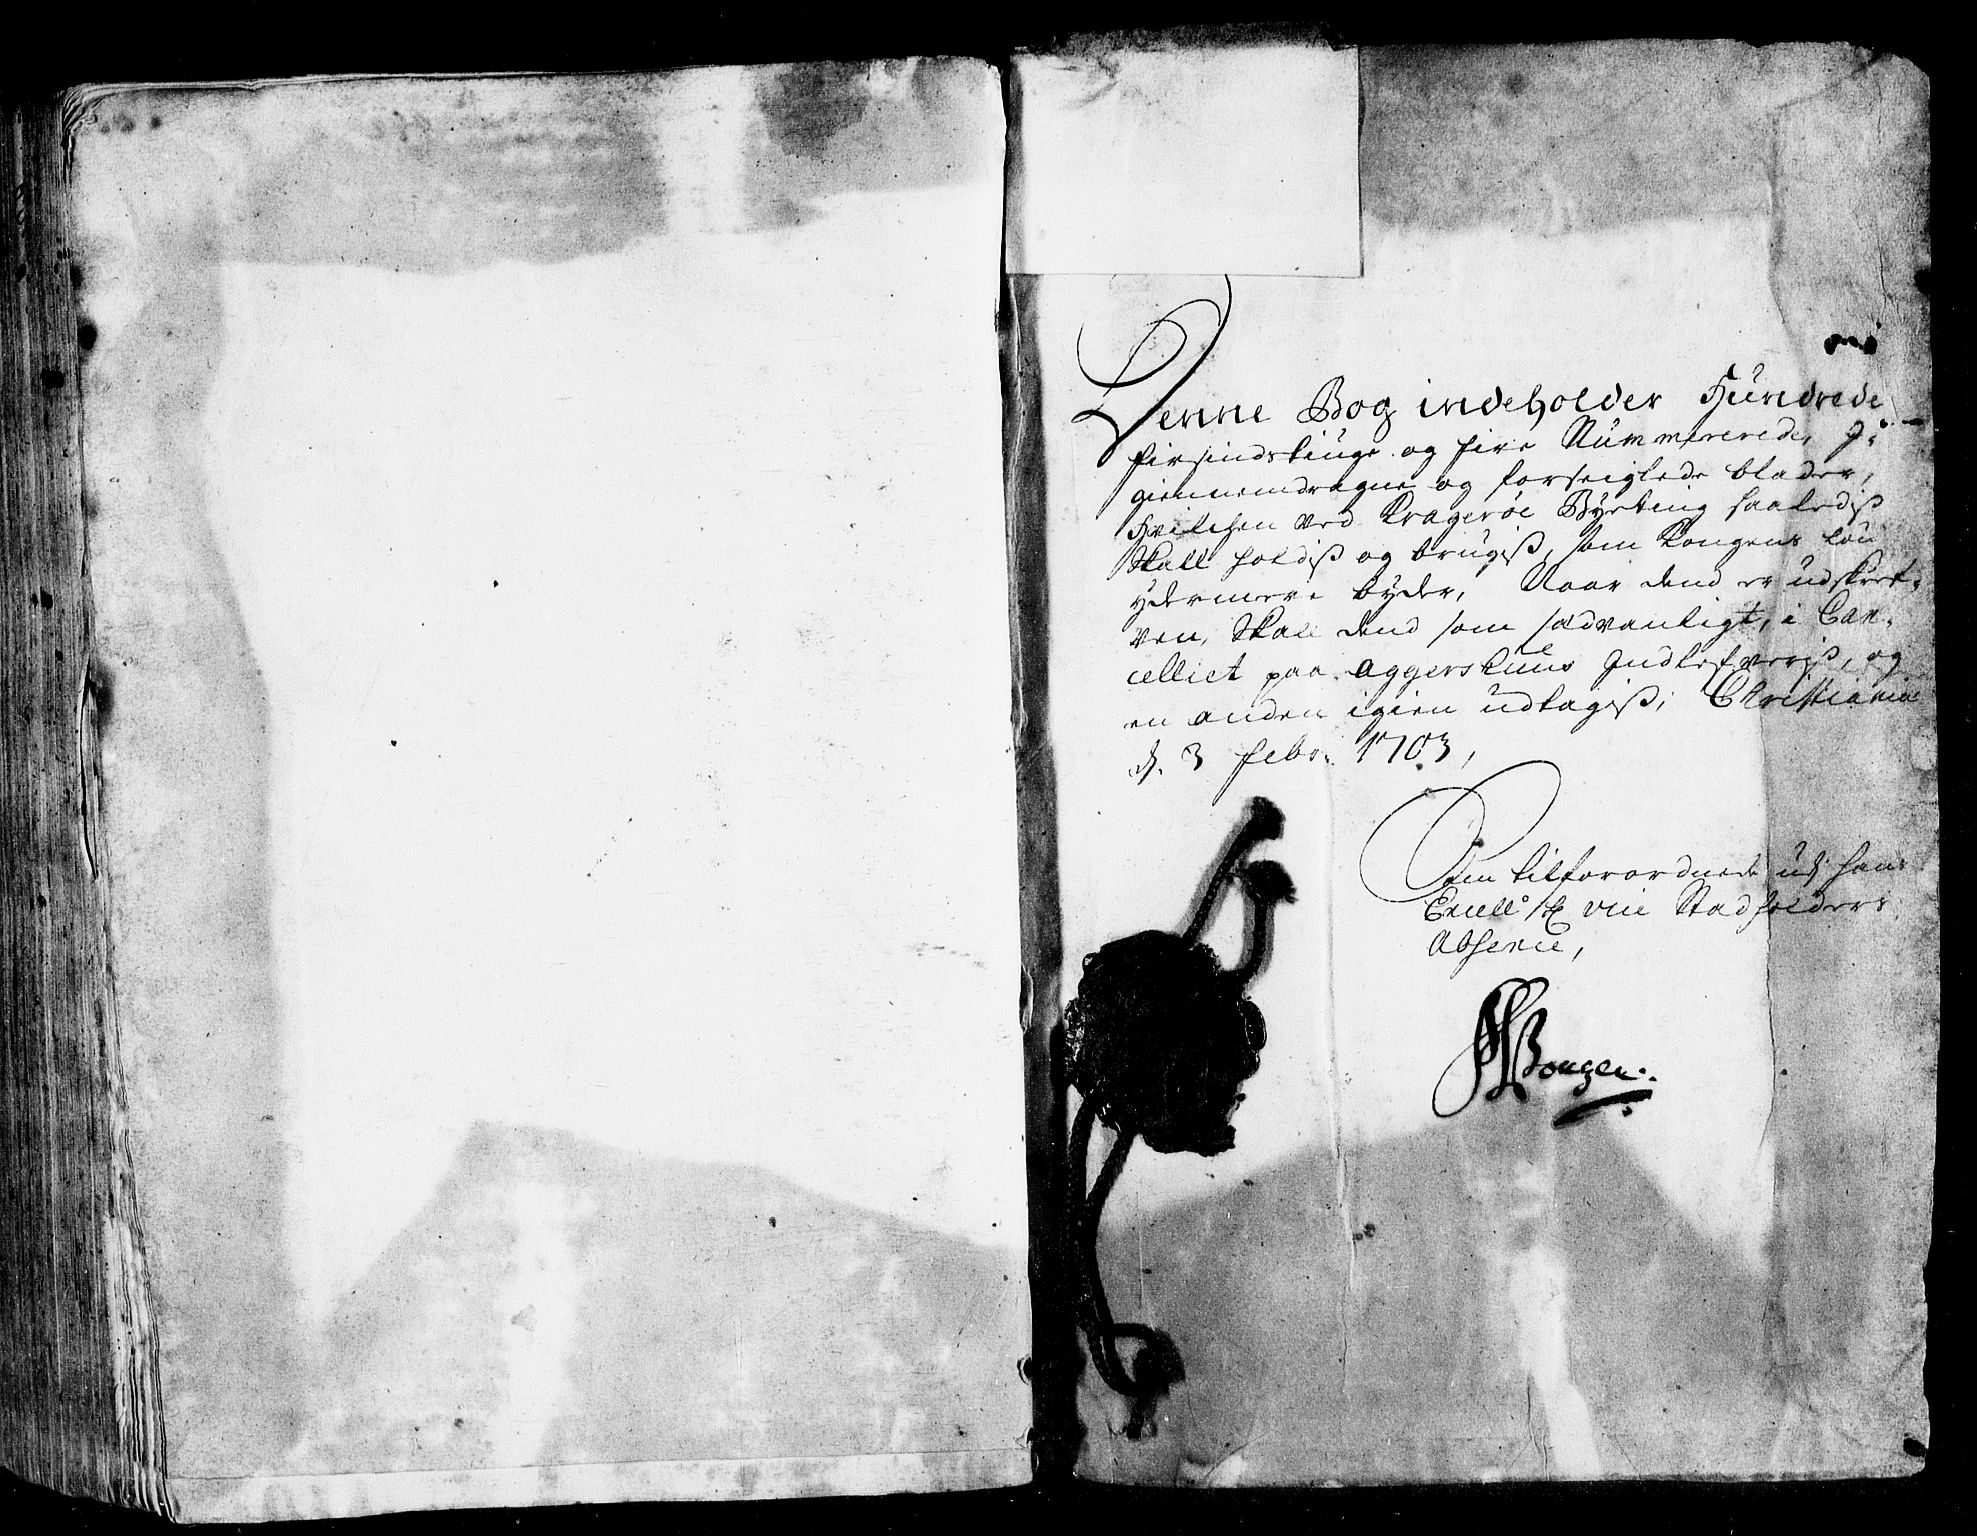 Denne Bog indeholder Hundrede
firsindstiuge og fire Nummererede, J-
giennemdragne og forseiglede blader,
Hvilchen ved Kragerøe Byeting saaledis̃
Skall holdis̃ og brugis̃, som Kongens lou
ydermere byder, Naar dend er udskref-
ven, Skall dend som sædvanligt, i Can-
celliet paa Aggershuus Indlefveris̃, og
en anden igien udtagis̃; Christiania
d. 3 febr: 1703,
Den tilforordnede udj hans
Excell: H vice Stadholders
Absence,